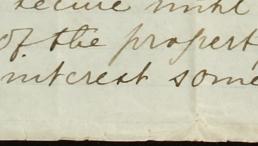 secure until
of the property
interest some